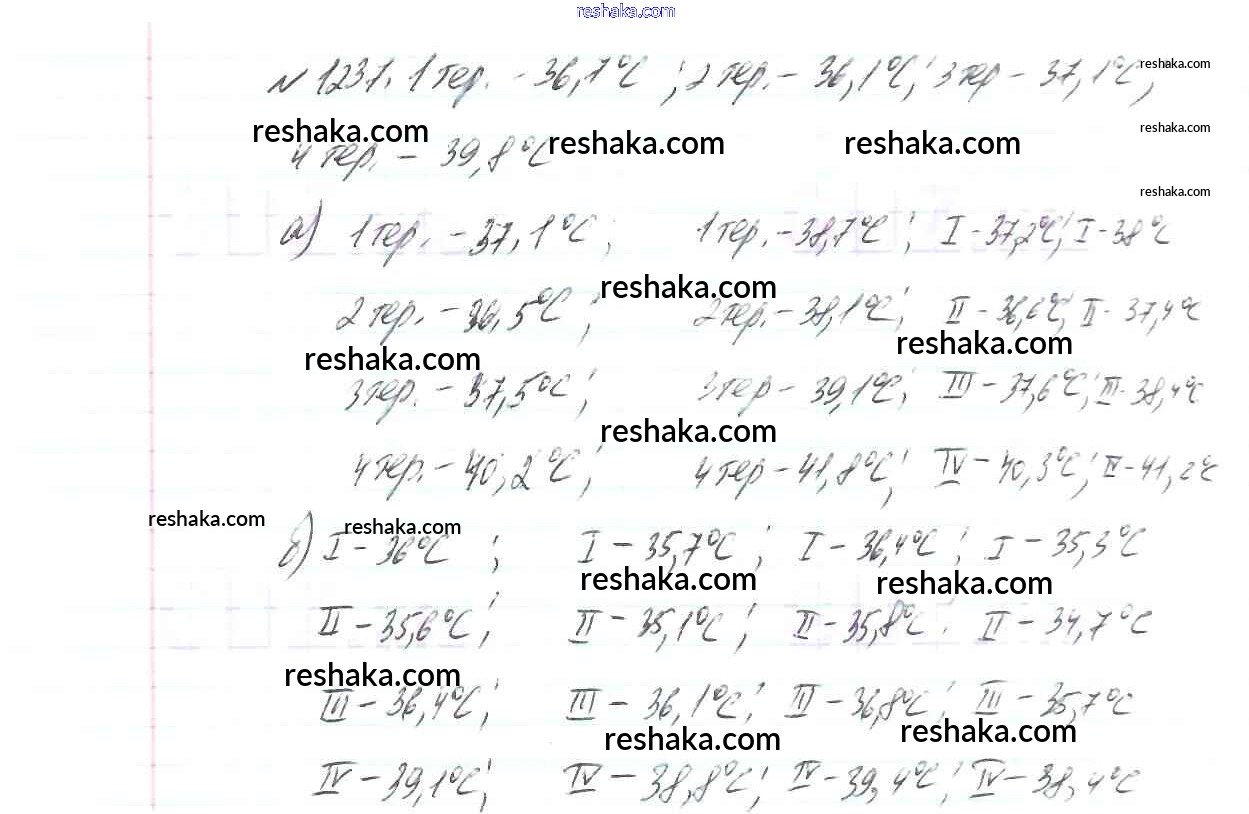 reshaka.com
№ 1231. 1 тер. - 36,7°C ; 2 тер. - 36,1°C; 3 тер - 37,1°C;
reshaka.com
reshaka.com
reshaka.com reshaka.com reshaka.com
4 тер. - 39,8°C
reshaka.com
а) 1 тер. - 37,1°C; 1 тер. - 38,7°C; I - 37,2°C; I - 38°C
reshaka.com
2 тер. - 36,5°C; 2 тер. - 38,1°C; II - 36,6°C; II - 37,4°C
reshaka.com reshaka.com
3 тер. - 37,5°C; 3 тер - 39,1°C; III - 37,6°C; III - 38,4°C
reshaka.com
4 тер. - 40,2°C; 4 тер - 41,8°C; IV - 40,3°C; IV - 41,2°C
reshaka.com reshaka.com
б) I - 36°C ; I - 35,7°C; I - 36,4°C; I - 35,3°C
reshaka.com reshaka.com
II - 35,6°C; II - 35,1°C; II - 35,8°C. II - 34,7°C
reshaka.com
III - 36,4°C; III - 36,1°C; II - 36,8°C; III - 35,7°C
reshaka.com reshaka.com
IV - 39,1°C; IV - 38,8°C; IV - 39,4°C; IV - 38,4°C